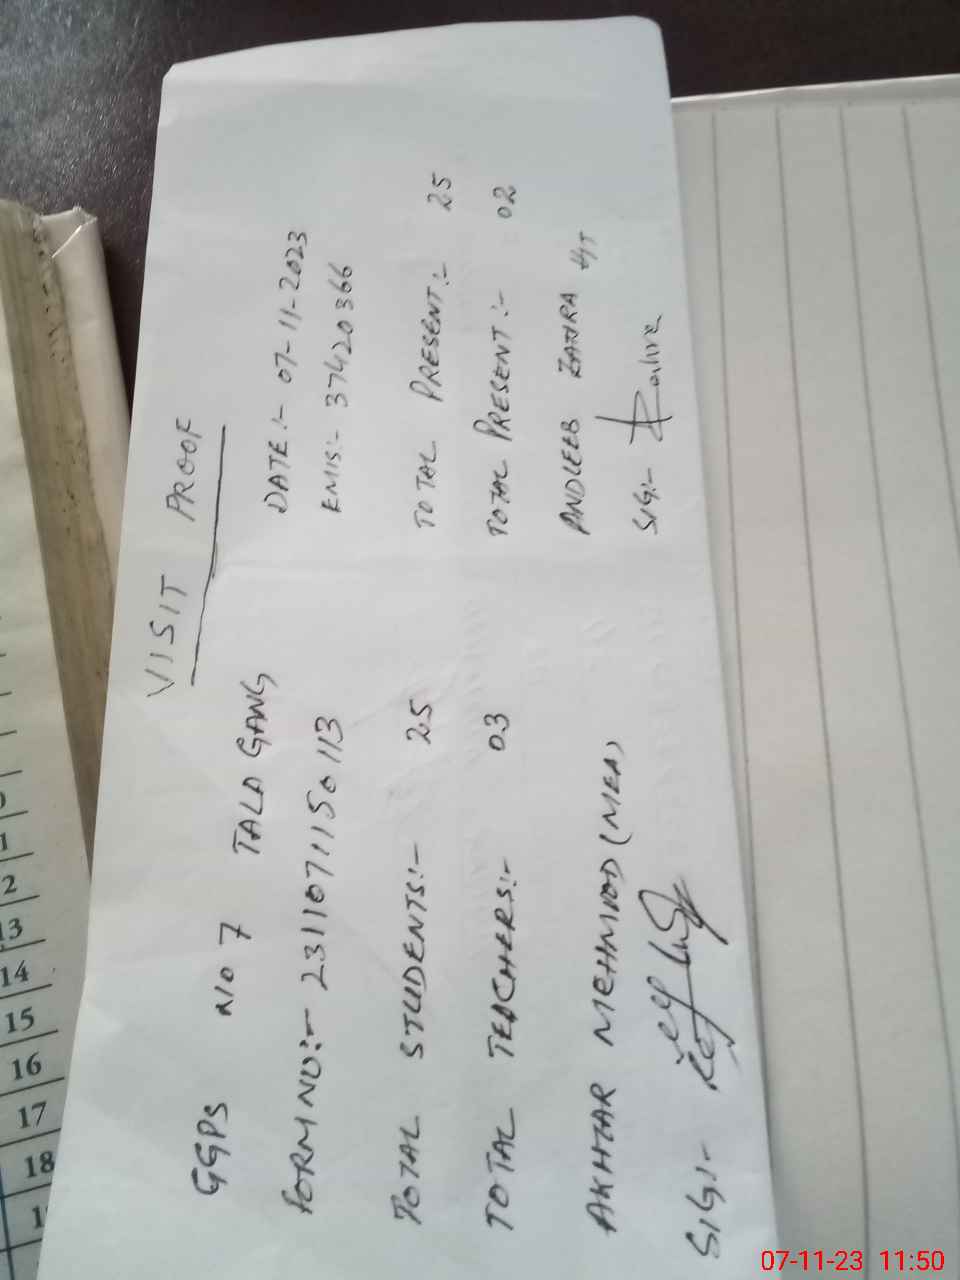 VISIT PROOF
GGPS NO 7 TALA GANG DATE:- 07-11-2023
FORM NO:- 2311071150113 EMIS:- 37420366
TOTAL STUDENTS:- 25 TOTAL PRESENT:- 25
TOTAL TEACHERS:- 03 TOTAL PRESENT:- 02
AKHTAR MEHMOOD (MEA) ANDLEEB ZAHRA HT
SIG:- SIG:-
1
2
13
14
15
16
17
18
07-11-23 11:50